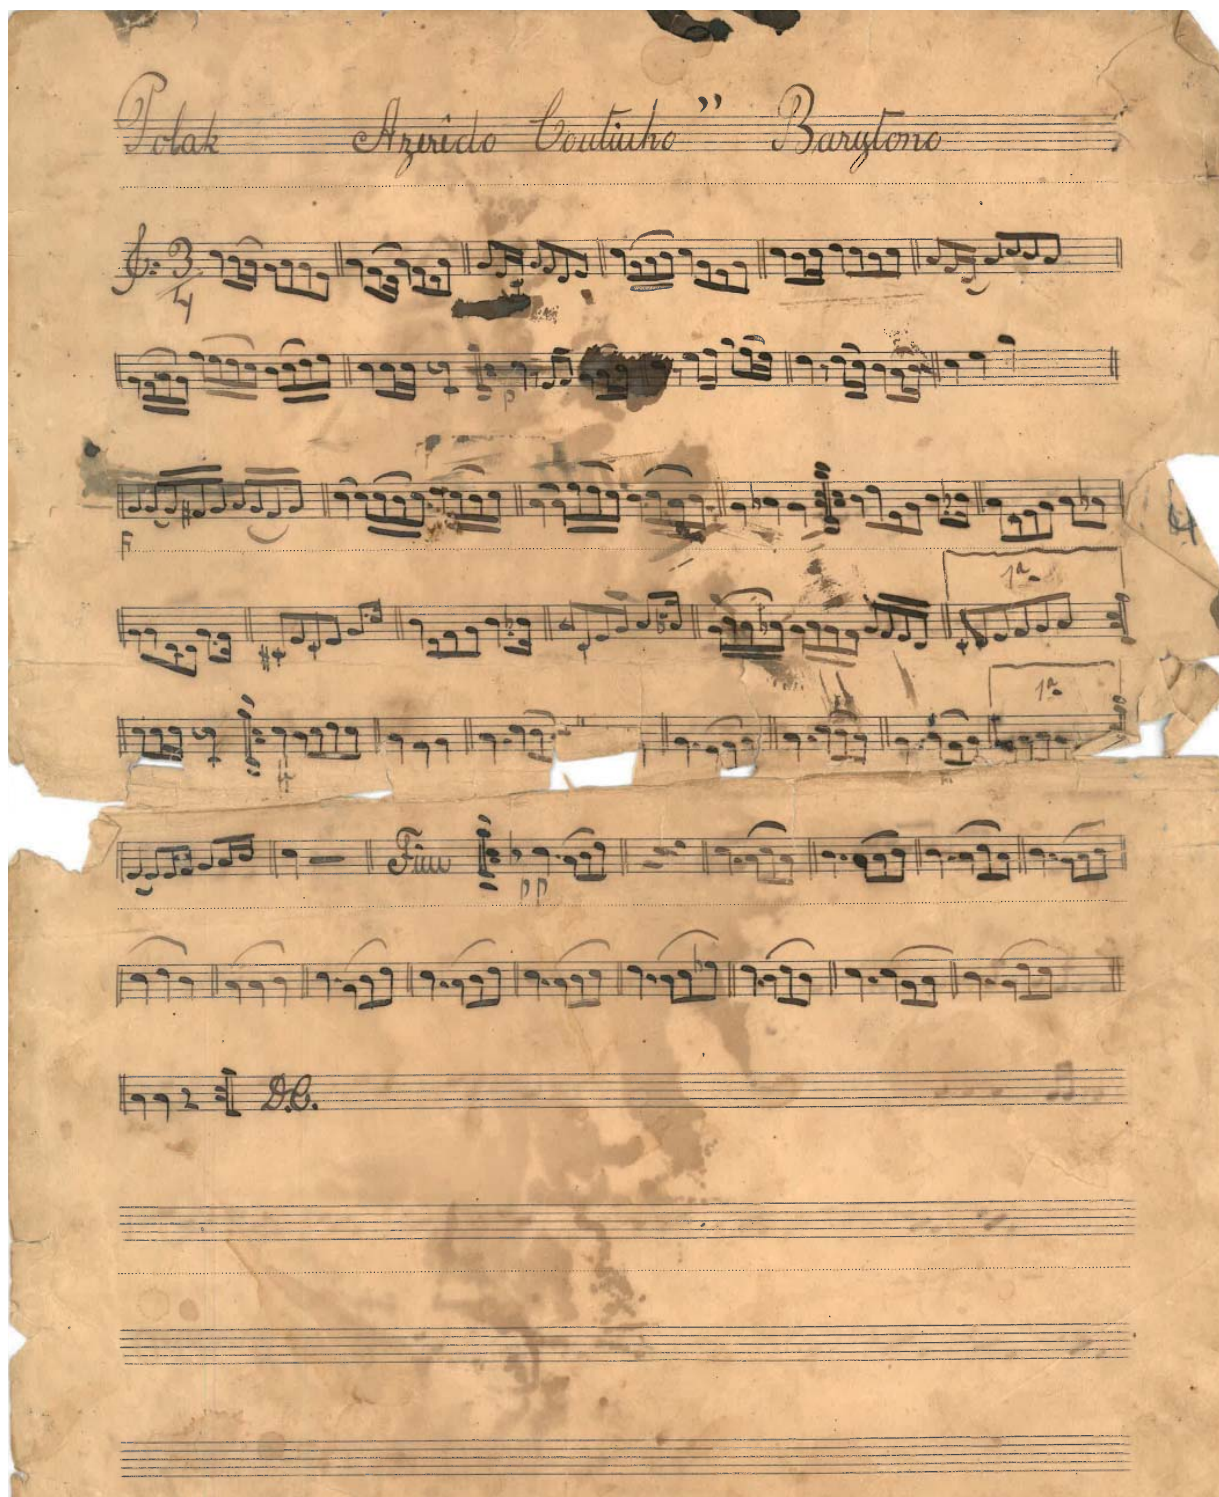 Polak Azerêdo Coutinho" Barytono
3
4
p
F
1ª
1ª
Fim
pp
D.C.